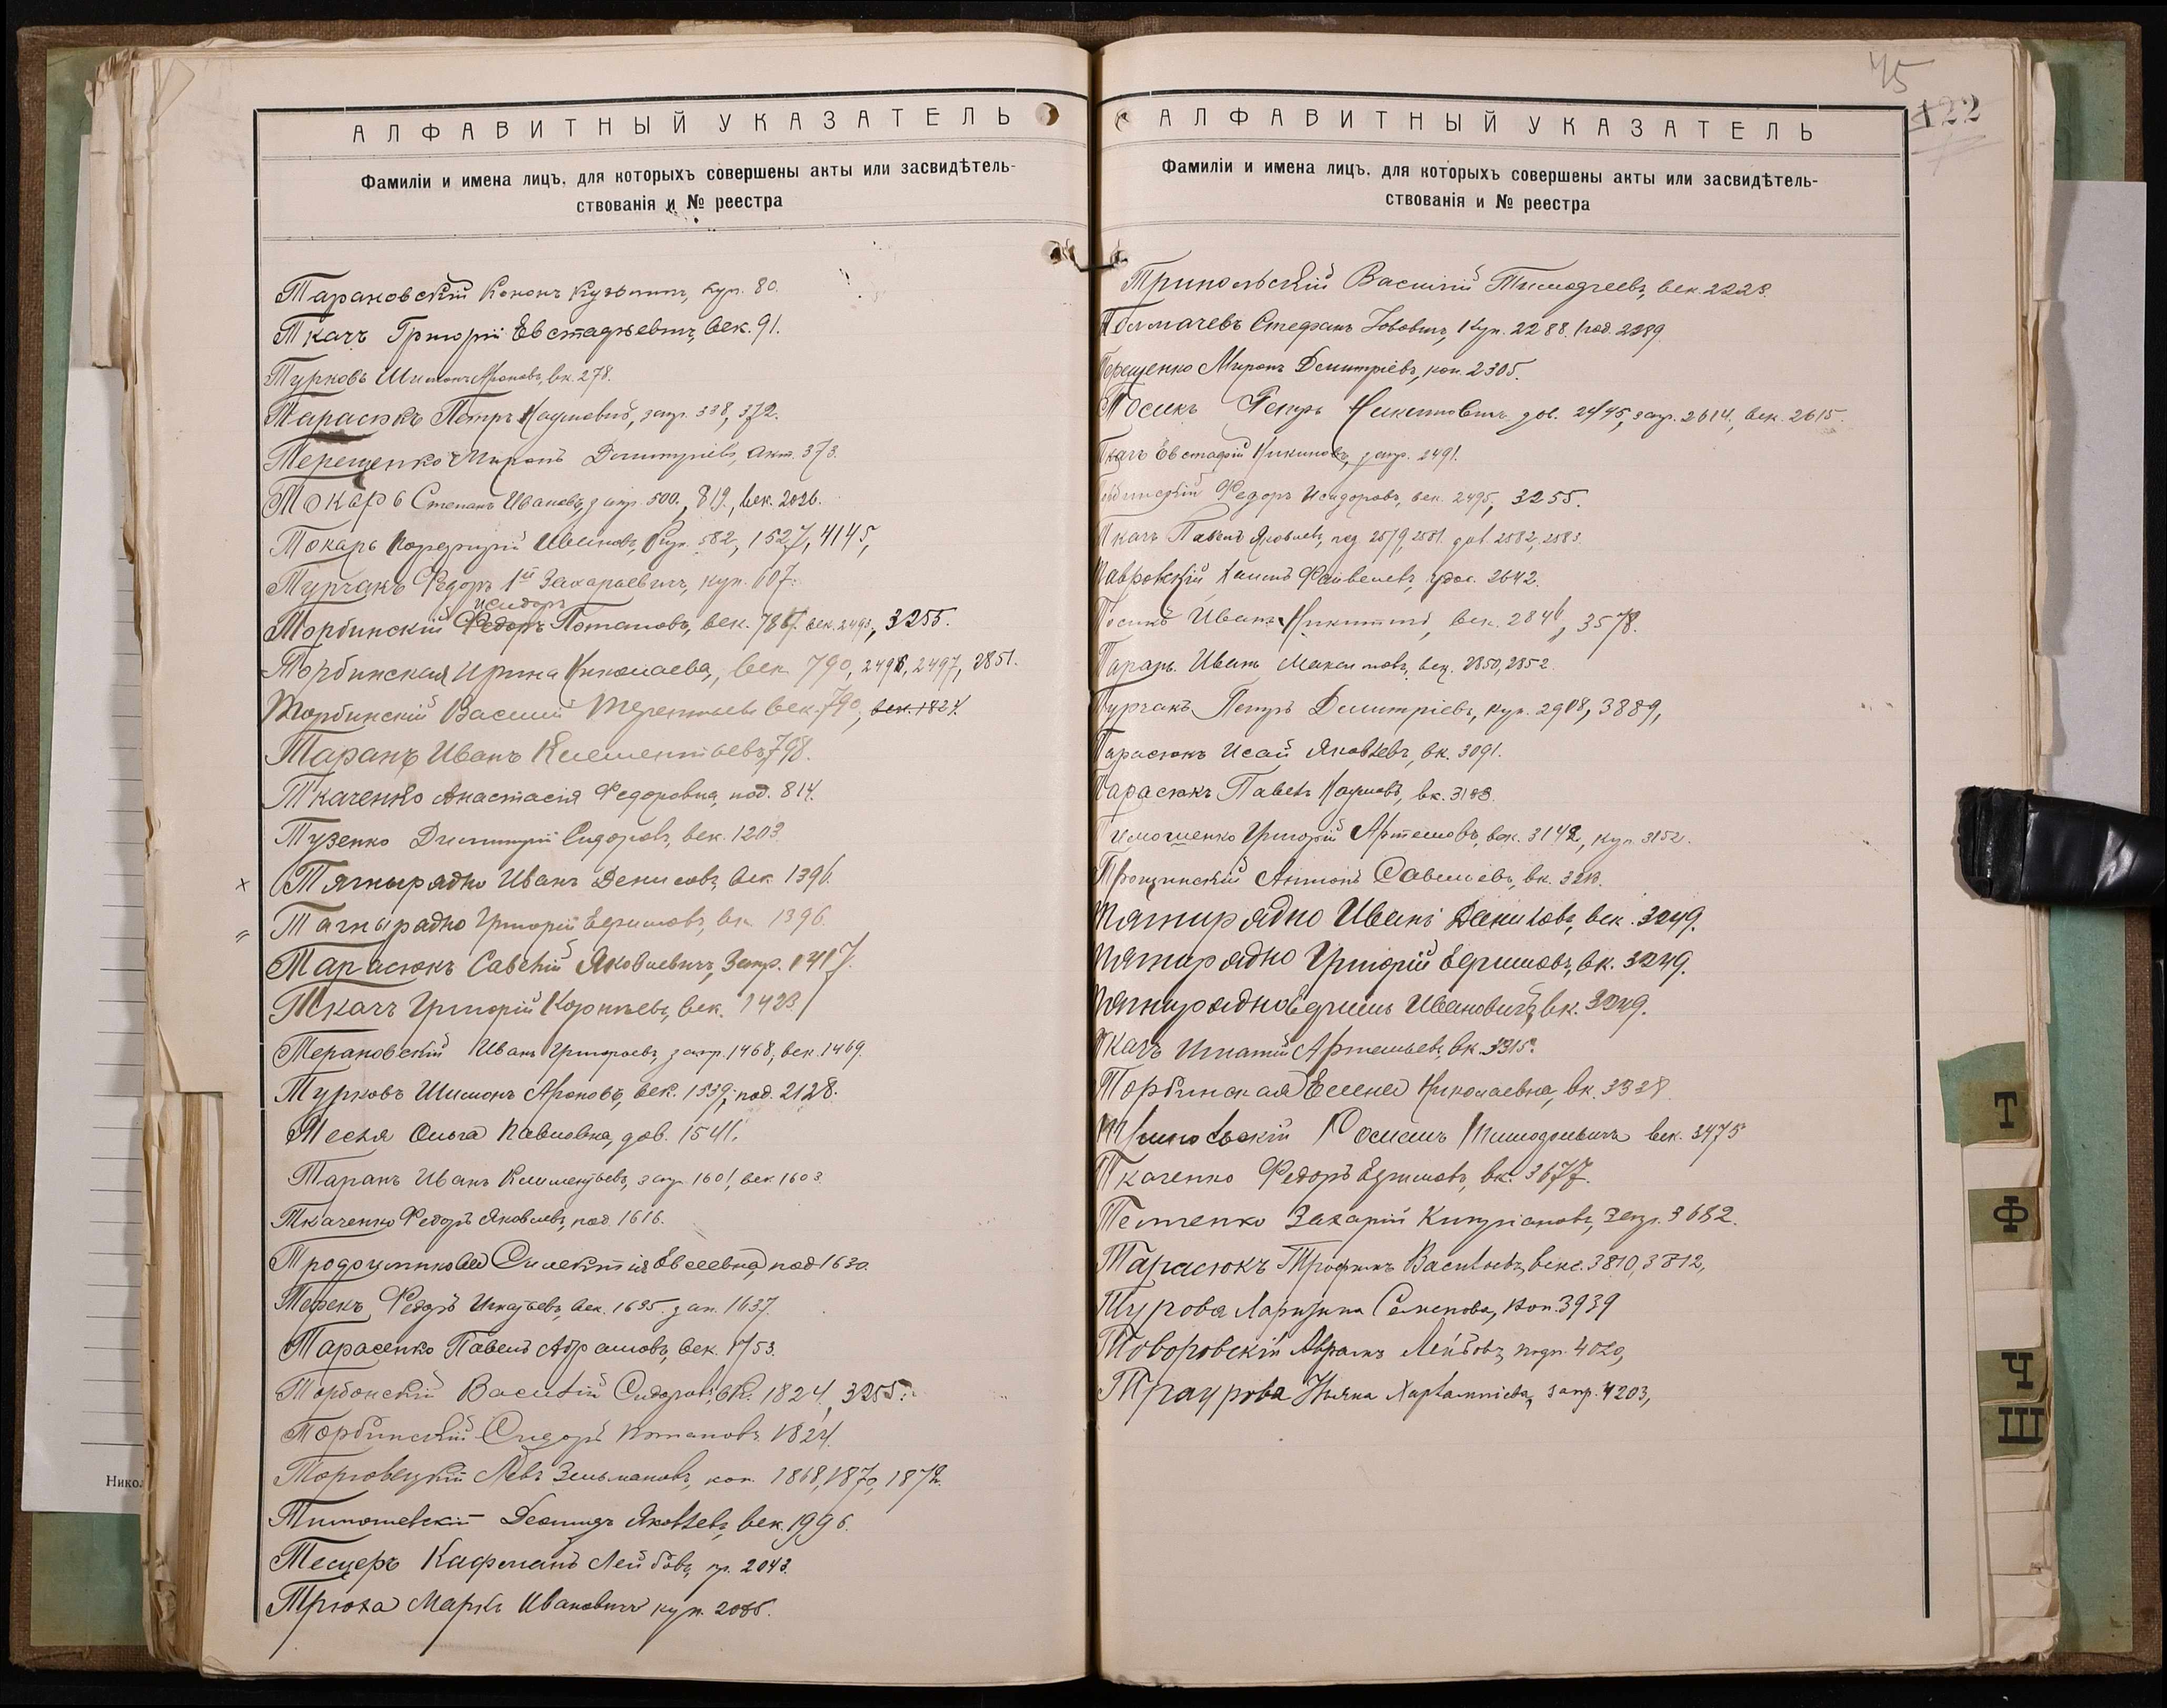 АЛФАВИТНЫЙ УКАЗАТЕЛЬ
Фамиліи и имена лицъ, для которыхъ совершены акты или засвидѣтель-
ствованія и № реестра
Тарановскій Кононъ Кузьмичъ, куп. 80.
Ткачъ Григорій Евстафьевичъ, век. 91.
Турковъ Шимонъ Ароновъ, вк. 278.
Тарасюкъ Петръ Наумовъ, запр. 338, 372.
Терещенко Миронъ Димитріевъ, акт. 373.
Токарь Степанъ Ивановъ, запр. 500, 819, век. 2026.
Токарь Порфирій Ивановъ, куп. 582, 1527, 4145,
Турчакъ Федоръ 1й Захарьевичъ, куп. 607.
Исидоръ
Торбинскій Федоръ Потаповъ, век. 786, век. 2493, 3255.
Торбинская Ирина Николаева, век 790, 2496, 2497, 2851.
Торбинскій Василій Терентьевъ век. 790, век. 1824.
Таранъ Иванъ Клементьевъ, 798.
Ткаченко Анастасія Федоровна, под. 814.
Тузенко Димитрій Сидоровъ, век. 1203.
Тягнырядно Иванъ Денисовъ, век 1396.
Тягнырядно Григорій Ефимовъ, вк. 1396.
Тарасюкъ Савелій Яковлевичъ, Запр. 1417.
Ткачъ Григорій Корнѣевъ, век. 1423
Терановскій Иванъ Григорьевъ, запр. 1468, век. 1469.
Турковъ Шимонъ Ароновъ, век. 1539, под. 2128.
Тесля Ольга Павловна, дов. 1541.
Таранъ Иванъ Климентьевъ, запр. 1601, век 1603.
Ткаченко Федоръ Яковлевъ, под. 1616.
Евсеевна, под 1630
Терекъ Федоръ Игнатьевъ, век. 1635. зап. 1637.
Тарасенко Павелъ Абрамовъ, век. 1753.
Торбонскій Василій Сидоровъ, вк. 1824, 3255.
Торбинскій Сидоръ Потаповъ 1824.
Торговецкій Левъ Зельмановъ, коп. 1868, 1870, 1872.
Тимошевскій Леонидъ Яковлевъ, век. 1996.
Тесцеръ Кафманъ Лейбовъ, пр. 2043.
Трюха Маркъ Ивановичъ куп. 2085.
45
122
АЛФАВИТНЫЙ УКАЗАТЕЛЬ
Фамиліи и имена лицъ, для которыхъ совершены акты или засвидѣтель-
ствованія и № реестра
Трипольскій Василій Тимофеевъ, век. 2223.
Толмачевъ Стефанъ Іововичъ, Куп. 2288, под. 2289.
Терещенко Миронъ Димитріевъ, коп. 2305.
Тосикъ Никитовичъ дов. 2445, запр. 2614, век. 2615.
Ткачъ Евстафій Никиновъ, запр. 2491.
Федоръ Исидоровъ, век. 2495, 3255.
Ткачъ Павелъ Яковлевъ, под 2579, 2581. дов. 2582, 2583.
Тавровскій Файвелевъ, удос. 2642.
Тосикъ Иванъ Никитинъ, век. 2846, 3578.
Таранъ Иванъ Максимовъ, век. 2850, 2852.
Турчакъ Петръ Димитріевъ, куп. 2908, 3889,
Тарасюкъ Исай Яковлевъ, вк. 3091.
Тарасюкъ Павелъ Наумовъ, вк. 3103.
Тимошенко Григорій Артемовъ, век. 3142, куп. 3152.
Трощинскій Антонъ Савельевъ, вк. 3213.
Тягнирядно Иванъ Денисовъ, век. 3249.
Тягнирядно Григорій Ефимовъ, вк. 3249.
Тягнирядно Ефимъ Ивановичъ, вк. 3249.
Ткачъ Игнатій Артемьевъ вк. 3315.
Торбинская Елена Николаевна, вк. 3328
Трипольскій Тимофеевичъ век. 3475
Ткаченко Федоръ Ефимовъ, вк. 3677.
Телтенко Захарій Кипріановъ, Запр. 3682.
Тарасюкъ Трофимъ Васильевъ, векс. 3810, 3812,
Турова Семенова, коп. 3939
Товоровскій Абрамъ Лейбовъ, подп. 4020,
Траурова Харлампіева, запр. 4203,
Никол
Т
Ф
Ч
Ш